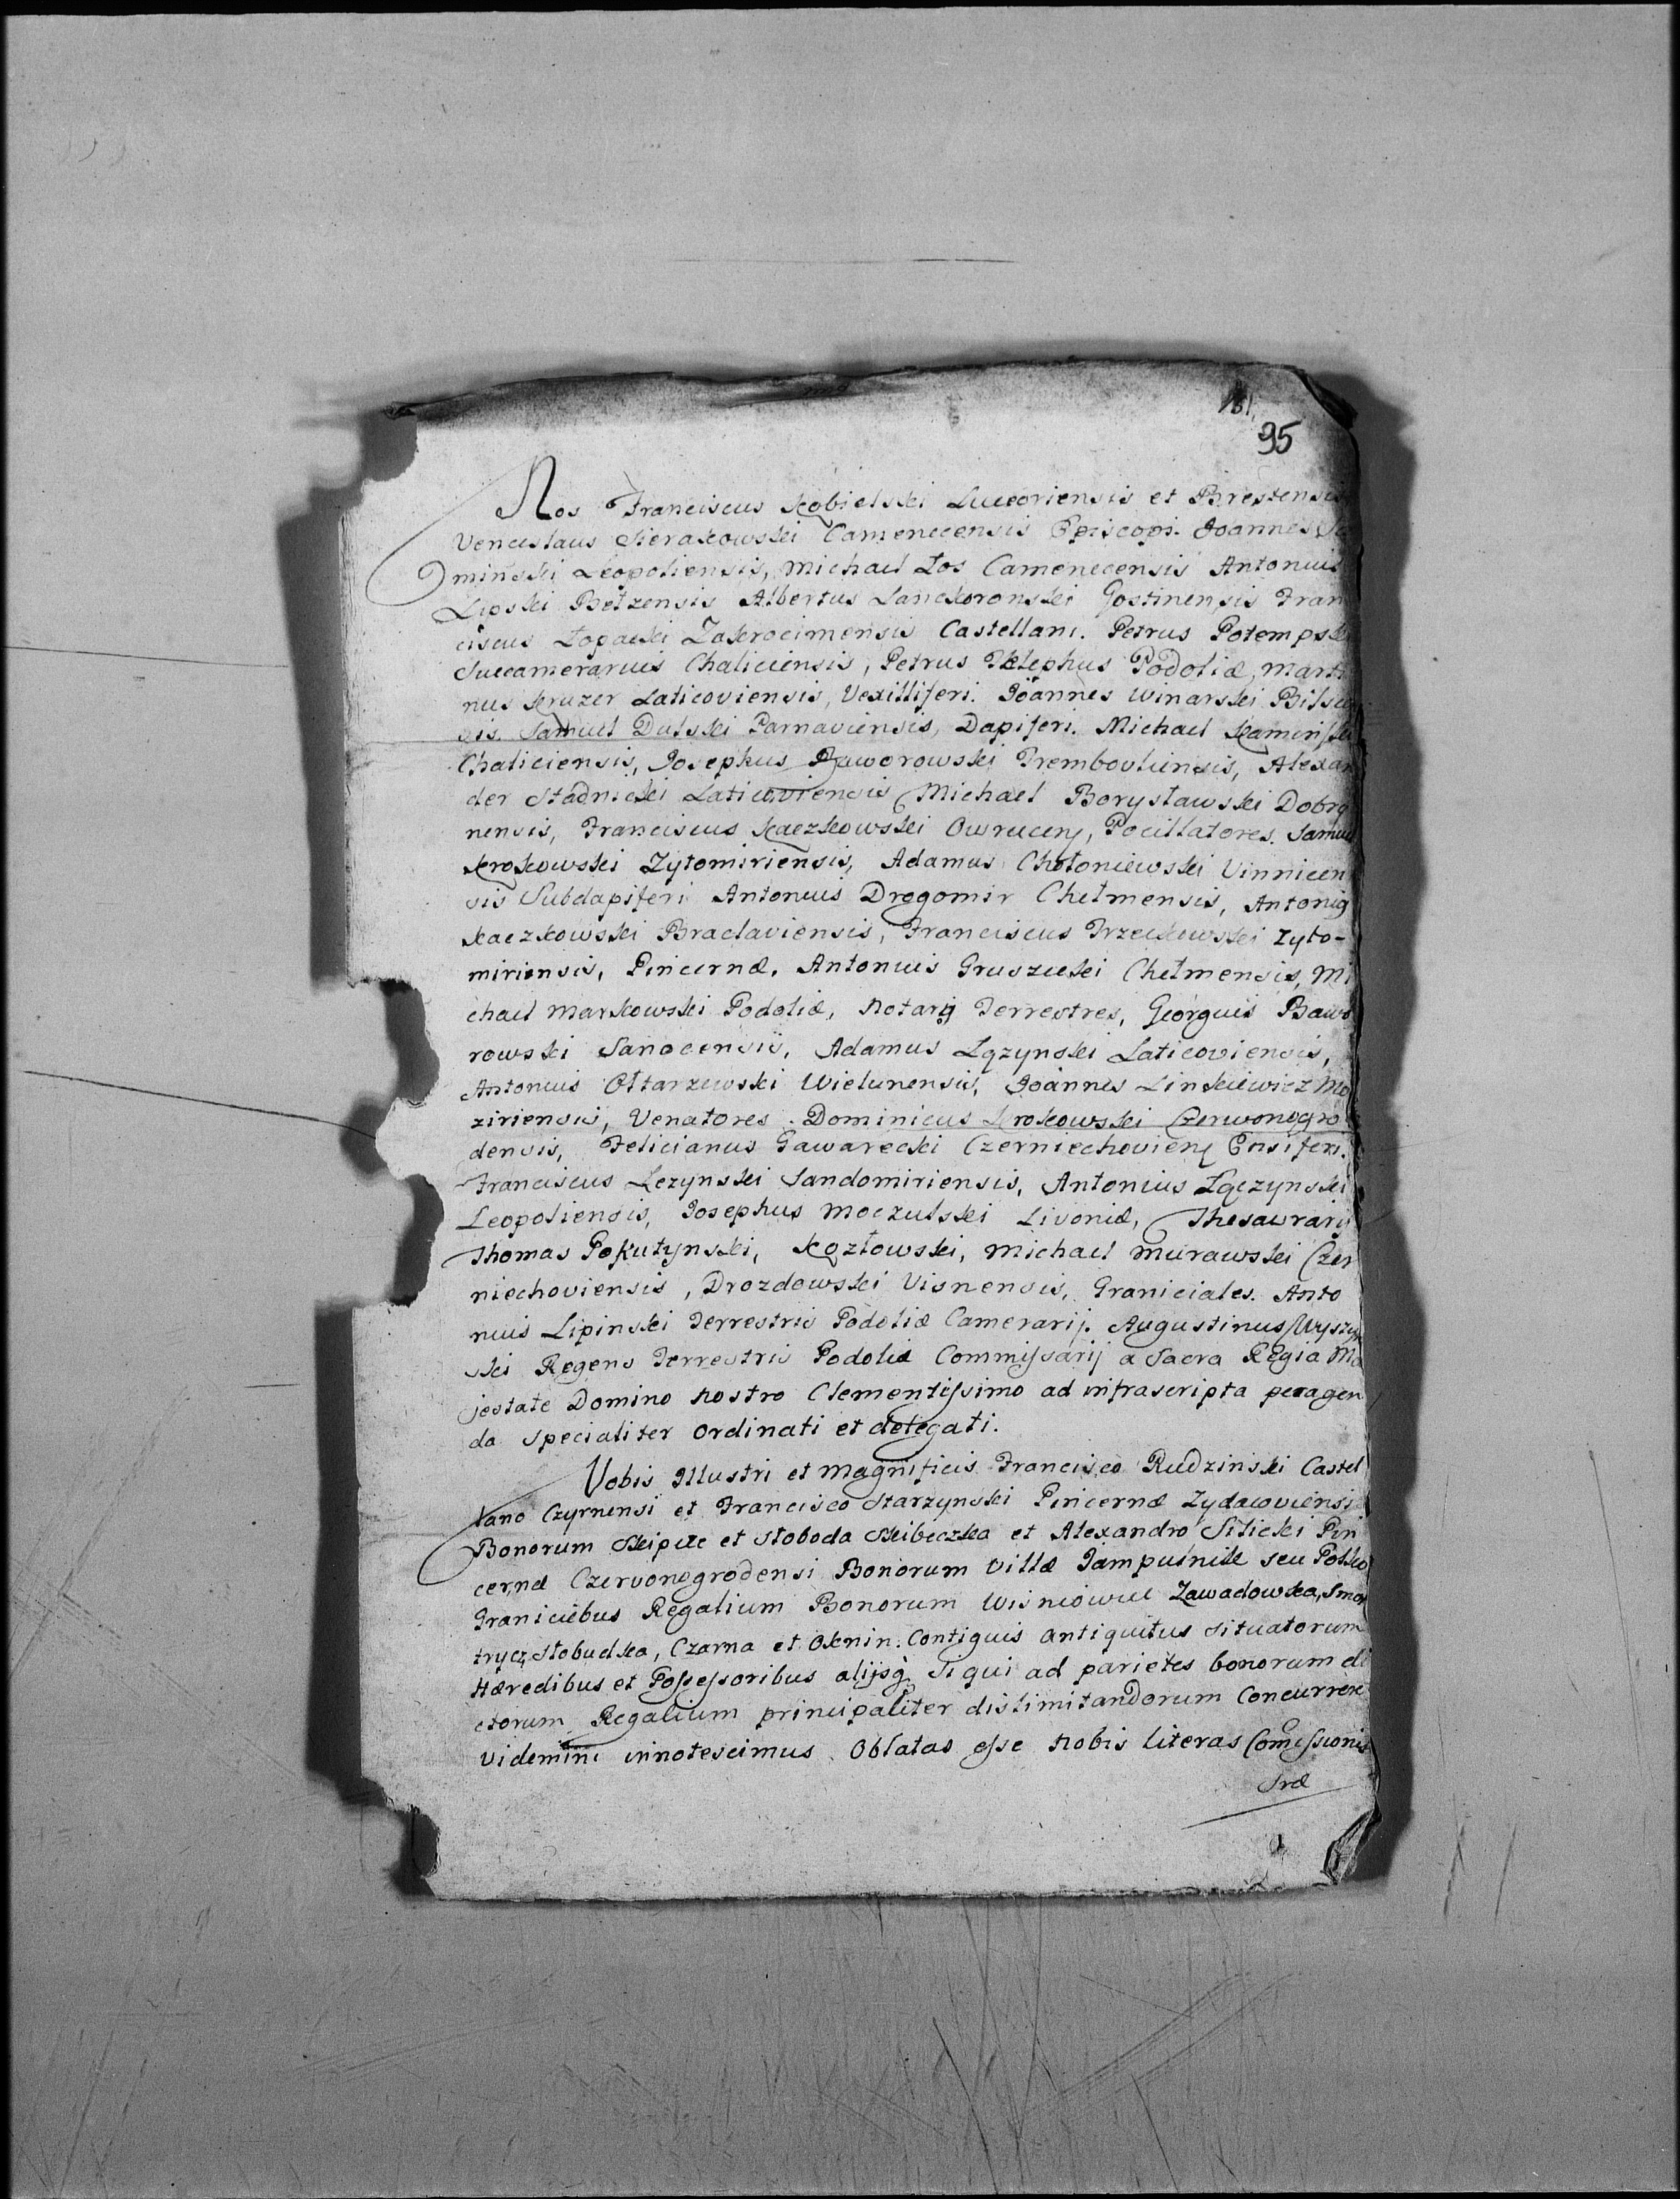 131.
95
Nos Franciscus Kobielski Luceoriensis et Brestensis
Venceslaus Sierakowski Camenecensis Episcopi. Joannes
minski Leopoliensis, Michael Łos Camenecensis Antonius
Lipski Bełzensis Albertus Lanckoronski Gostinensis Fran
ciscus Łopacki Zakrocimensis Castellani. Petrus Potempski
Succamerarius Chaliciensis, Petrus Telephus Podoliæ, Marti
nus Kruzer Laticoviensis, Vexilliferi. Joannes Winarski
sis. Samuel Dulski Parnaviensis, Dapiferi. Michael Kaminski
Chaliciensis, Josephus Jaworowski Trembovliensis, Alexan
der Stadnicki Laticoviensis Michael Borysławski Dobrzy
nensis, Franciscus Kaczkowski Owrucen, Pocillatores. Samuel
Krokowski Zytomiriensis, Adamus Chołoniewski Vinnicen
sis Subdapiferi Antonius Drogomir Chełmensis, Antonig
Kaczkowski Braclaviensis, Franciscus Trzeciskowski Zyto-
miriensis, Pincernæ. Antonius Gruszecki Chełmensis, Mi
chael Markowski Podoliæ, Notarÿ Terrestres, Georgius Bawo
rowski Sanocensis, Adamus Łązynski Laticoviensis,
Antonius Ołtarzewski Wielunensis, Joannes Linkiewicz Mo
ziriensis, Venatores. Dominicus Krokowski Czerwonogro
densis, Felicianus Gawarecki Czerniechovien Ensiferi.
Franciscus Łezynski Sandomiriensis, Antonius Łączynski
Leopoliensis, Josephus Moczulski Livoniæ, Thesaurarÿ
Thomas Pokutynski, Kozłowski, Michael Murawski Czer
niechoviensis, Drozdowski Visnensis, Graniciales. Anto
nius Lipinski Terrestris Podoliæ Camerarij. Augustinus Wyszyn
ski Regens Terrestris Podoliæ Commissarij a Sacra Regia Ma
jestate Domino nostro Clementissimo ad infrascripta peragen
da specialiter ordinati et delegati.
Vobis Illustri et Magnificis Francisco Rudzinski Castel
lano Czyrnensi et Francisco Starzynski Pincernæ Zydacoviensi
Bonorum Skipcze et Słoboda Skibeczka et Alexandro Silicki Pin
cernæ Czervonogrodensi Bonorum Villæ Jampulnik seu
Graniciebus Regalium Bonorum Wisniowiec Zawadowka, Smo
trycz Słobudka, Czarna et Oknin. Contiguis antiquitus situatorum
Hæredibus et Possessoribus alijsq; si qui ad parietes bonorum di
ctorum Regalium principaliter dislimitandorum Concurrere
videmini innotescimus Oblatas esse nobis literas Comissionis
Sræ